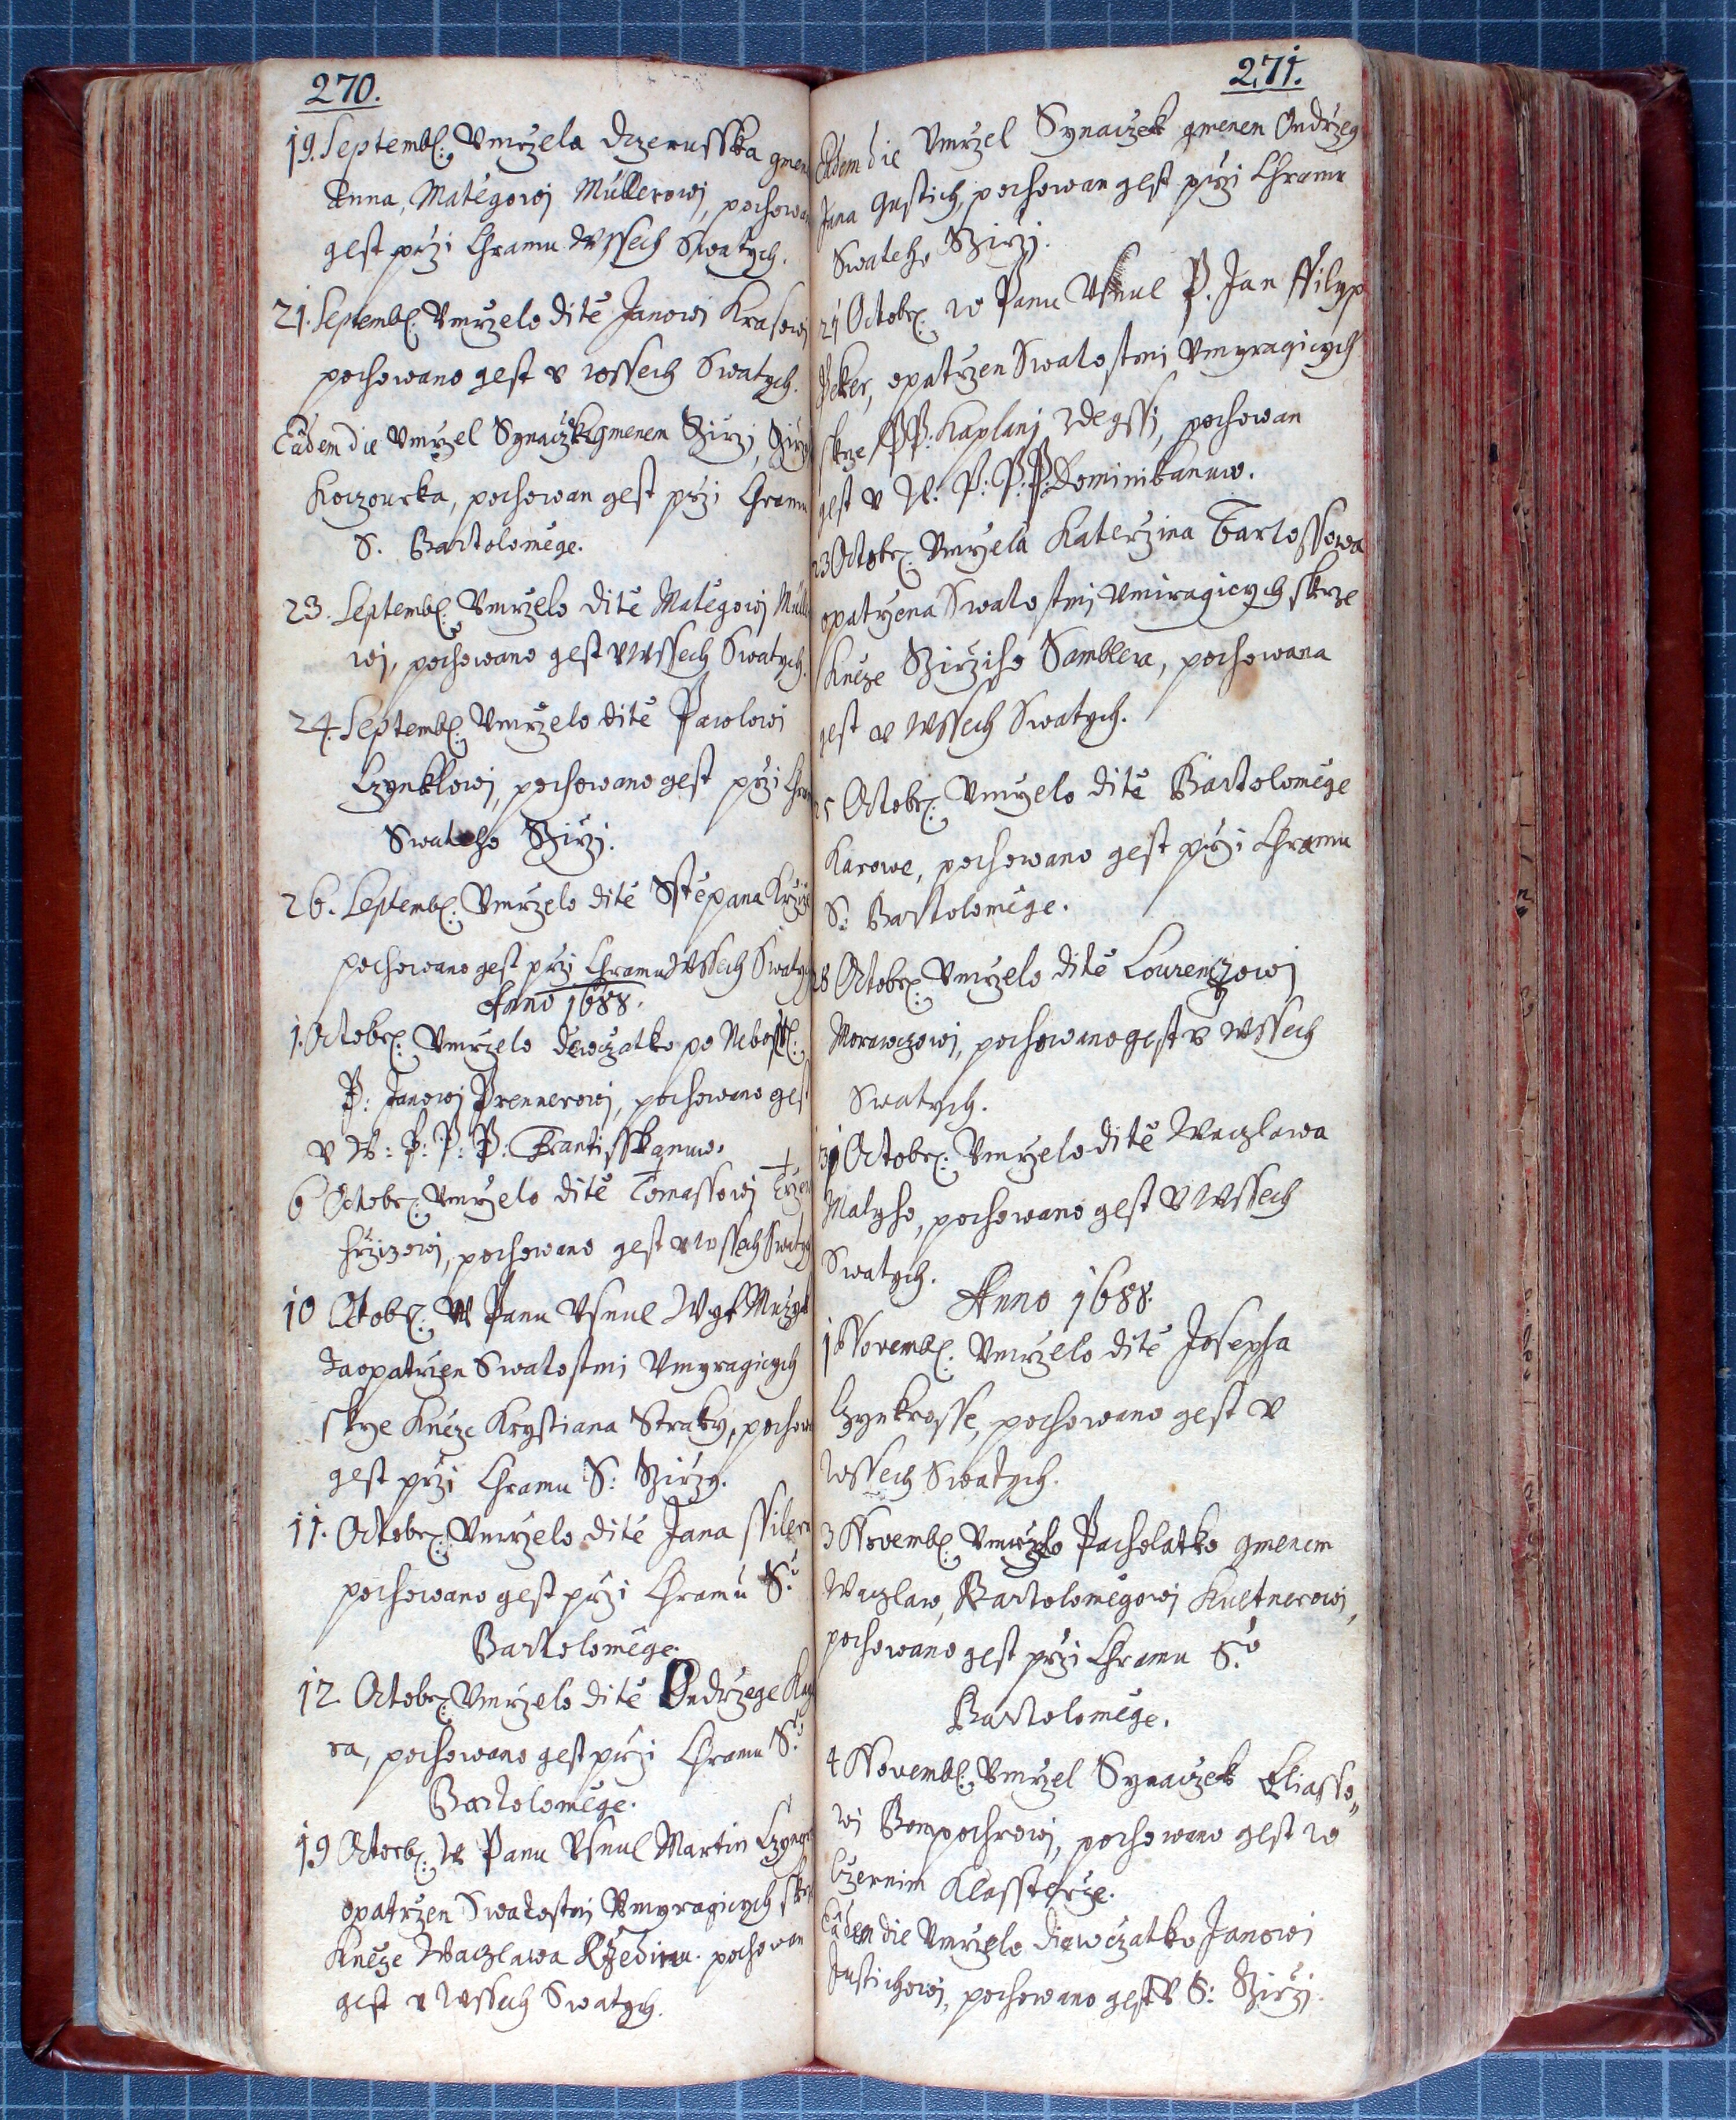 270.
19. Septemb: Vmrzela dczerusska gmen
Anna, Matégowj Müllerowj, pochowa
gest przi Chramu Wssech Swatych.
21. Septemb: Vmrzelo dité Janowj Krasowj
pochowano gest v wssech Swatych.
Eâdem die Vmrzel Synaczek gmenem Girzi, Girzi
Koczourka, pochowan gest przi Chramu
S. Bartolomége.
23. Septemb: Vmrzelo dité Matégowj Müll
wj, pochowano gest v Wssech Swatych.
24. Septemb: Vmrzelo dité Pawlowi
Czynklowj, pochowano gest przi Chra
Swateho Girzj.
26. Septemb: Vmrzelo dité Sstépana
pochowano gest przi Chramu Wssech Swatych
Anno 1688.
1. Octobr: Vmrzelo dewczatko po Nebosst:
P: Janowj Prennerowj, pochowano gest
v W: P: P: P: Frantisskanuw.
6 Octobr: Vmrzelo dité Tomassowj
hrzizowj, pochowano gest v wssech Swatych
10 Octobr: W Panu Vsnul Wyt
Zaopatrzen Swatostmi Vmyragicych
skrze Knéze Krystiana Straky, pochow
gest przi Chramu S: Girzy.
11. Octobr: Vmrzelo dité Jana ffilera
pochowano gest przi Chramu S:º
Bartolomége.
12. Octobr: Vmrzelo dité Ondrzege Ka
ra, pochowano gest przi Chramu S:º
Bartolomége.
19 Octorb: W Panu Vsnul Martin
opatrzen Swatostmi Vmyragicych skr
Knéze Waczlawa pochowan
gest v Wssech Swatych.
271.
Eâdem die Vmrzel Synaczek gmenem Ondrzeg
Jana Gustich, pochowan gest przi Chramu
Swateho Girzj.
21 Octobr: w Panu Vsnul P. Jan ffilyp
Peker, opatrzen Swatostmi Vmyragicych
skrze PP: Kaplanj zdegssj, pochowan
gest v W: P: P: P: Dominikanuw.
23 Octobr: Vmrzela Katerzina Bartossowa
opatrzena Swatostmi Vmiragicych skrze
Knéze Girziho Samblera, pochowana
gest v Wssech Swatych.
25 Octobr: Vmrzelo dité Bartolomége
Karowe, pochowano gest przi Chramu
S: Bartolomége.
28 Octobr: Vmrzelo dité Lourenczowj
Morawczowj, pochowano gest v Wssech
Swatych.
31 Octobr: Vmrzelo dité Waczlawa
Malyho, pochowano gest v Wssech
Swatych.
Anno 1688.
1 Novemb: Vmrzelo dité Josepha
Czynkrosse, pochowano gest v
Wssech Swatych.
3 Novemb: Vmrzelo Pacholatko gmenem
Waczlaw, Bartolomégowj Kuetnerowj,
pochowano gest przi Chramu S:º
Bartolomége.
4 Novemb: Vmrzel Synaczek Eliasso,,
wj, pochowano gest w
Czernim Klassterze.
Eâdem die Vmrzelo diewczatko Janowi
Justichowj, pochowano gest v S: Girzj.